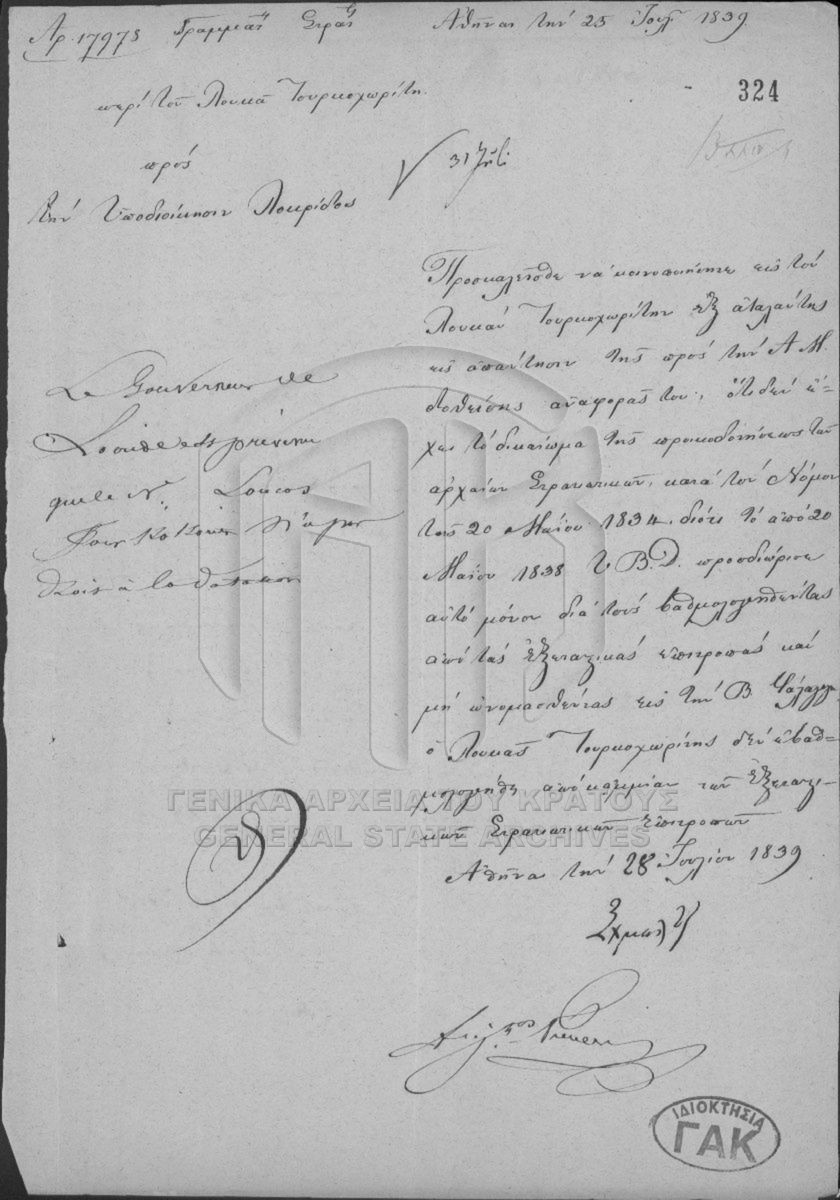 Αρ. 17978 Γραμματ. Στρατ. Αθήναι την 25 Ιουλ. 1839
324
περί του Λουκά Τουρκοχωρίτη.
31 Juli
πρός
την Υποδιοίκησιν Λοκρίδος
Προσκαλείσθε να κοινοποιήσητε εις τον
Λουκάν Τουρκοχωρίτην εξ Αταλάντης
εις απάντησιν της προς την Α.Μ.
δοθείσης αναφοράς του, ότι δεν έ-
χει το δικαίωμα της προικοδοτήσεως των
αρχαίων Στρατιωτικών, κατά τον Νόμον
της 20 Μαΐου 1834, διότι το από 20
Μαΐου 1838 Υ.Β.Δ. προσδιώρισε
αυτό μόνον διά τους βαθμολογηθέντας
από τας Εξεταστικάς επιτροπάς και
μή ονομασθέντας εις την Β. Φάλαγγα
ο Λουκάς Τουρκοχωρίτης δεν εβαθ-
μολογήθη από καμμίαν των Εξεταστι-
κών Στρατιωτικών Επιτροπών
Αθήναι την 28 Ιουλίου 1839
Σχμαλτζ
Le Gouverneur de
Locride est prévenu
que le Nr. Loucas
droit à la dotation
ΓΕΝΙΚΑ ΑΡΧΕΙΑ ΤΟΥ ΚΡΑΤΟΥΣ
GENERAL STATE ARCHIVES
ΙΔΙΟΚΤΗΣΙΑ
ΓΑΚ